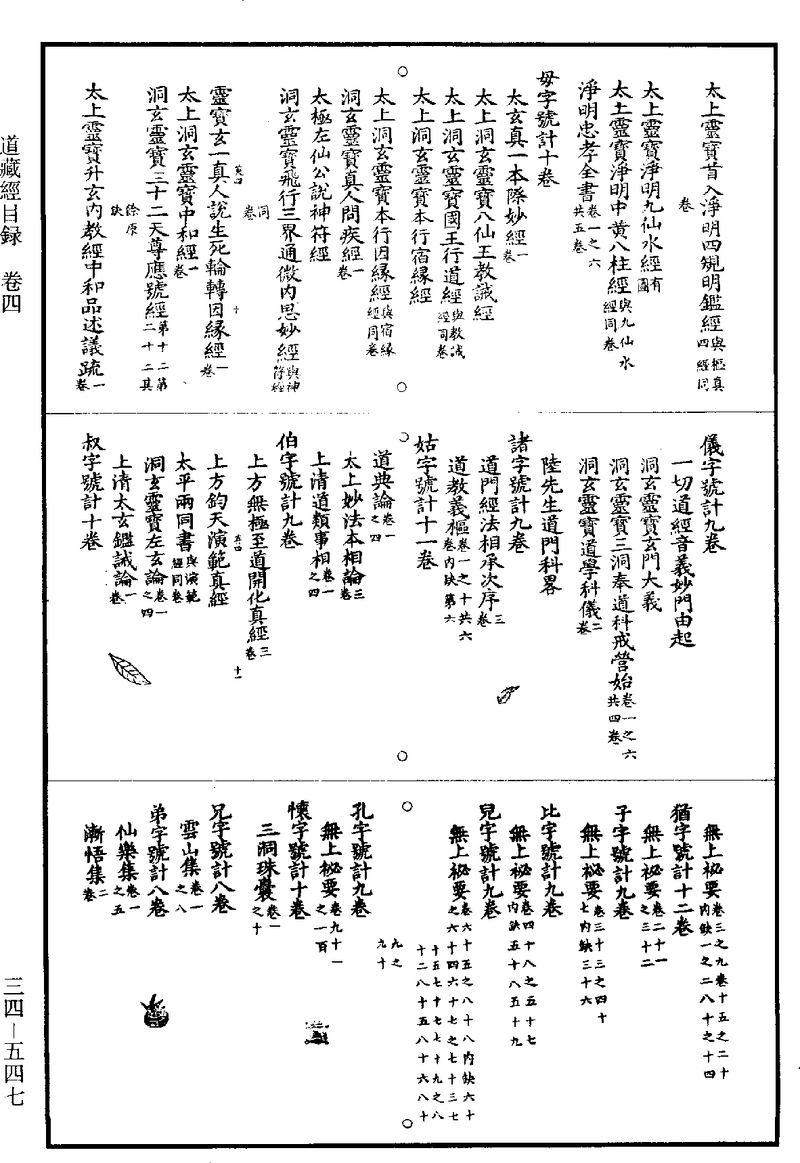 道藏經目録 卷四
三四－五四七
太上靈寶首入淨明四規明鑑經與樞真四經同卷
太上靈寶淨明九仙水經有圖
太上靈寶淨明中黃八柱經與九仙水經同卷
淨明忠孝全書卷一之六共五卷
母字號計十卷
太玄真一本際妙經一卷
太上洞玄靈寶八仙王教誡經
太上洞玄靈寶國王行道經與教誡經同卷
太上洞玄靈寶本行宿緣經
太上洞玄靈寶本行因緣經與宿緣經同卷
洞玄靈寶真人問疾經一卷
太極左仙公說神符經
洞玄靈寶飛行三界通微內思妙經與神符經同卷
靈寶玄一真人說生死輪轉因緣經一卷
太上洞玄靈寶中和經一卷
洞玄靈寶三十二天尊應號經第十二第二十二其餘原缺
太上靈寶升玄內教經中和品述議疏一卷
儀字號計九卷
一切道經音義妙門由起
洞玄靈寶玄門大義
洞玄靈寶三洞奉道科戒營始卷一之六共四卷
洞玄靈寶道學科儀二卷
陸先生道門科畧
諸字號計九卷
道門經法相承次序三卷
道教義樞卷一之十共六卷內缺第六
姑字號計十一卷
道典論卷一之四
太上妙法本相論三卷
上清道類事相卷一之四
伯字號計九卷
上方無極至道開化真經三卷
上方鈞天演範真經
太平兩同書與演範經同卷
洞玄靈寶左玄論卷一之四
上清太玄鑑誡論一卷
叔字號計十卷
無上祕要卷三之九卷十五之二十內缺一之二八十之十四
猶字號計十二卷
無上祕要卷二十一之三十二
子字號計九卷
無上祕要卷三十三之四十七內缺三十六
比字號計九卷
無上祕要卷四十八之五十七內缺五十八五十九
兒字號計九卷
無上祕要卷六十五之八十八內缺六十之六十四六十七之七十三七十五七十七七十九之八十二八十五八十六八十九之九十
孔字號計九卷
無上祕要卷九十一之一百
懷字號計十卷
三洞珠囊卷一之十
兄字號計八卷
雲山集卷一之八
弟字號計八卷
仙樂集卷一之五
漸悟集二卷